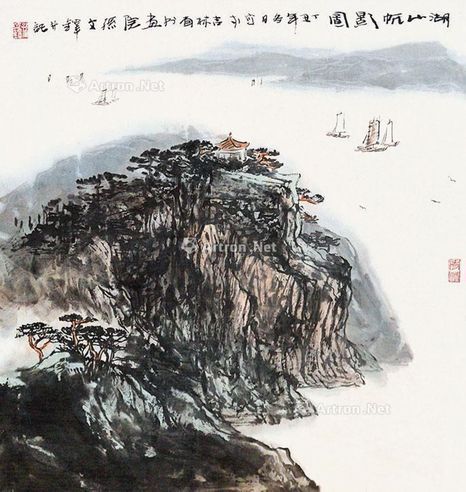 湖山帆影圖 丁丑年冬日寫於吉林省书画院 孫文鐸并記
Artron.Net
Artron.Net
Artron.Net